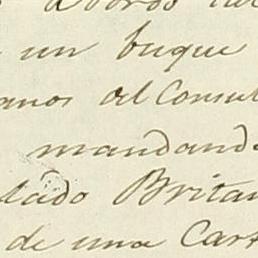 a bordo
un buque
anos del Consul
mandando
ltado Britan
de una Cart